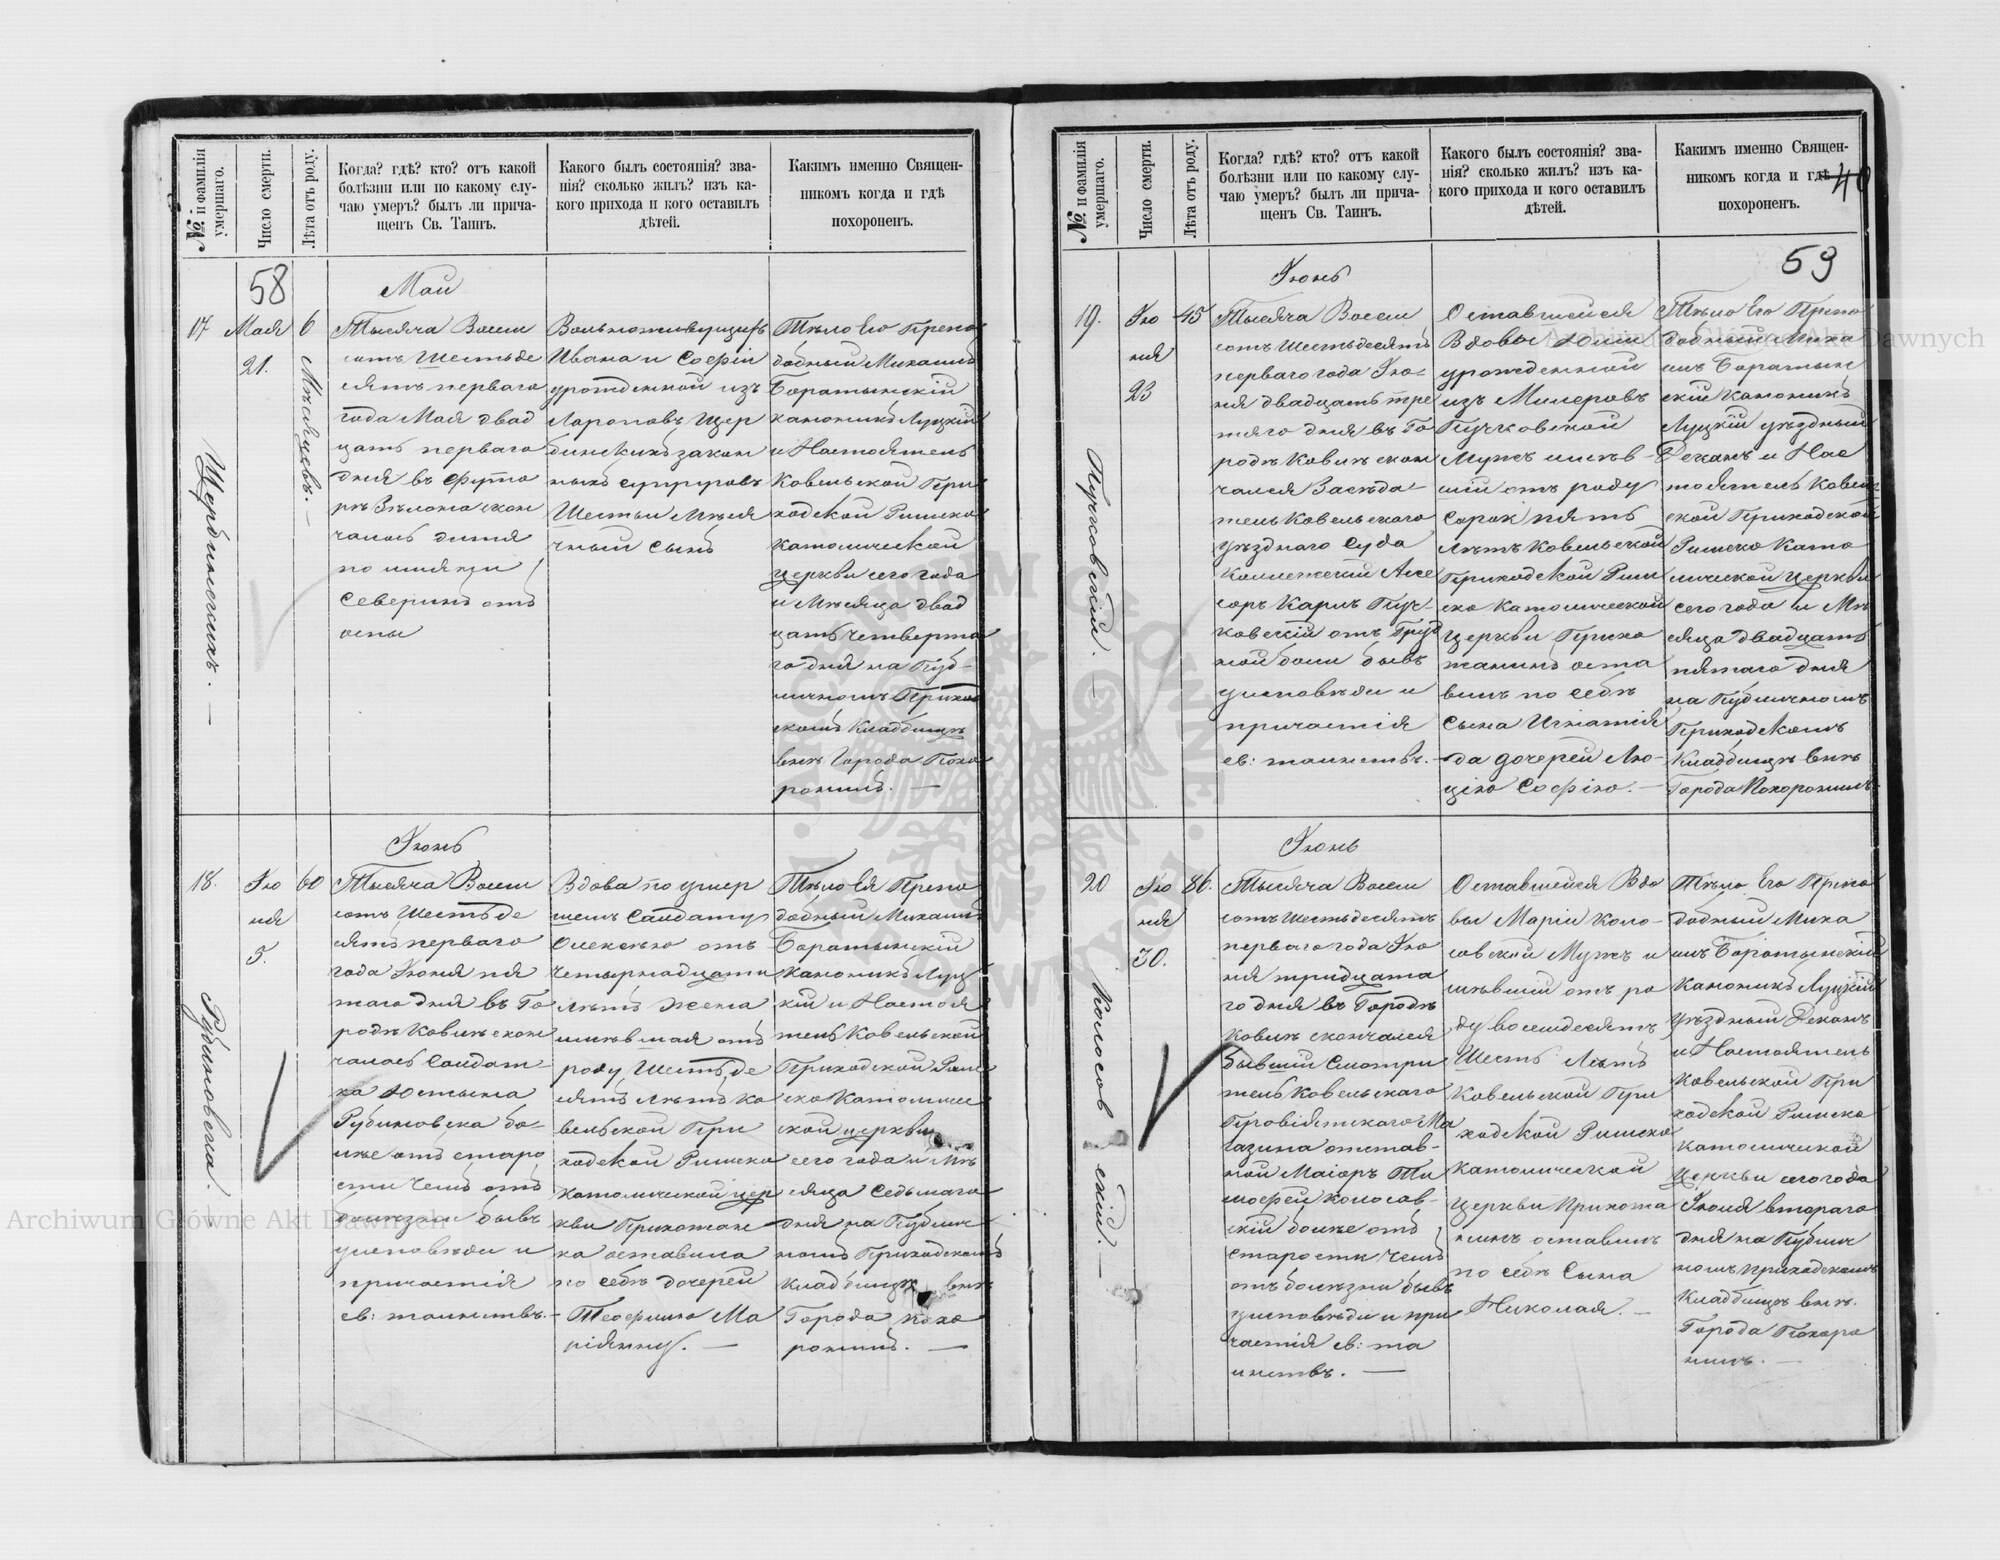 № и фамилія умершаго.
Число смерти.
Лѣта отъ роду.
Когда? гдѣ? кто? отъ какой
болѣзни или по какому слу-
чаю умеръ? былъ ли прича-
щенъ Св. Таинъ.
Какого былъ состоянія? зва-
нія? сколько жилъ? изъ ка-
кого прихода и кого оставилъ
дѣтей.
Какимъ именно Священ-
никомъ когда и гдѣ
похороненъ.
58
17
Щербинскихъ. —
Мая
21.
6
Мѣсяцевъ. —
Май
Тысяча Восем
сотъ Шестьде
сятъ перваго
года Мая двад
цать перваго
дня въ Футо
рѣ скон
чалось дитя
по имяни
Северинъ отъ
оспы
Вольноживущихъ
Ивана и Софіи
урожденной изъ
Лароновъ Щер
бинскихъ закон
ныхъ супруговъ
Шести Мѣся
чный сынъ
Тѣло Его Препо
добный Михаилъ
Боратынскій
каноникъ Луцкій
и Настоятель
Ковельской При
ходской Римско
католической
церкви сего года
и Мѣсяца двад
цать четверта
го дня на Пуб-
личномъ Приход
скомъ Кладбищѣ
внѣ Города Похо
ронилъ. —
18.
Рубиновска. —
Ію
ня
5.
60
Іюнь
Тысяча Восем
сотъ Шестьде
сятъ перваго
года Іюня пя
таго дня въ Го
родѣ Ковлѣ скон
чалась Солдат-
ка Юстына
Рубиновска бо-
лѣе отъ старо
сти чемъ отъ
болѣзни бывъ
уисповѣди и
причастія
св: таинствъ. —
Вдова по умер
шемъ Салдату
Олексѣю отъ
четырнадцати
лѣтъ жена
имѣвшая отъ
роду Шестьде
сятъ лѣтъ Ко
вельской При
ходской Римско
католической цер
кви Прихожан
ка оставила
по себѣ дочерей
Теофилю Ма
ріянну. —
Тѣло Ея Препо
добный Михаилъ
Боратынскій
каноникъ Луц
кій и Настоя
тель Ковельской
Приходской Рим
ско Католичес
кой церкви
сего года и Мѣ
сяца Седьмаго
дня на Публич
номъ Приходскомъ
кладбищѣ внѣ
Города похо
ронилъ. —
№ и фамилія умершаго.
Число смерти.
Лѣта отъ роду.
Когда? гдѣ? кто? отъ какой
болѣзни или по какому слу-
чаю умеръ? былъ ли прича-
щенъ Св. Таинъ.
Какого былъ состоянія? зва-
нія? сколько жилъ? изъ ка-
кого прихода и кого оставилъ
дѣтей.
Какимъ именно Священ-
никомъ когда и гдѣ
похороненъ.
40
59
19.
Пучковскій. —
Ію
ня
23
45
Іюнь
Тысяча Восем
сотъ Шестьдесятъ
перваго года Ію-
ня двадцать тре
тяго дня въ Го
родѣ Ковлѣ скон
чался Засѣда-
тель Ковельскаго
Уѣзднаго Суда
Коллежскій Асе
соръ Карлъ Пуч-
ковскій отъ Груд
ной боли бывъ
уисповѣди и
причастія
св: таинствъ. —
Оставшейся
Вдовы Юліи
урожденной
изъ Милеровъ
Пучковской
Мужъ имѣв-
шій отъ роду
Сорок пять
лѣтъ Ковельской
Приходской Рим
ско Католической
церкви Прихо
жанинъ оста
вилъ по себѣ
сына Игнатія
да дочерей Лю-
цію Софію. —
Тѣло Его Препо
добный Миха
илъ Боратын
скій каноникъ
Луцкій уѣздный
Деканъ и Нас
тоятель Ковель
ской Приходской
Римско Като
лической Церкви
сего года и Мѣ
сяца двадцать
пятаго дня
на Публичномъ
Приходскомъ
Кладбищѣ внѣ
Города Похоронилъ
20
Колосовскій. —
Ію
ня
30.
86.
Іюнь
Тысяча Восем
сотъ Шестьдесятъ
перваго года Ію
ня тридцата
го дня въ Городѣ
Ковлѣ скончался
бывшій Смотри
тель Ковельскаго
Провіятскаго Ма
газина отстав-
ной Маіоръ Ти
мофей Колосов-
скій болѣе отъ
старости чемъ
отъ болѣзни бывъ
уисповѣди и при
частія св: та
инствъ. —
Оставшейся Вдо
вы Маріи Коло-
совской Мужъ и
мѣвшій отъ ро
ду восемдесятъ
Шесть Лѣтъ
Ковельской При
ходской Римско
католической
Церкви Прихожа
нинъ оставилъ
по себѣ Сына
Николая. —
Тѣло Его Препо
добный Миха
илъ Боратынскій
Каноникъ Луцкій
Уѣздный Деканъ
и Настоятель
Ковельской При
ходской Римско
католической
Церкви сего года
Іюля втораго
дня на Публич
номъ приходскомъ
Кладбищѣ внѣ.
Города Похоро
нилъ. —
Archiwum Główne Akt Dawnych
Archiwum Główne Akt Dawnych